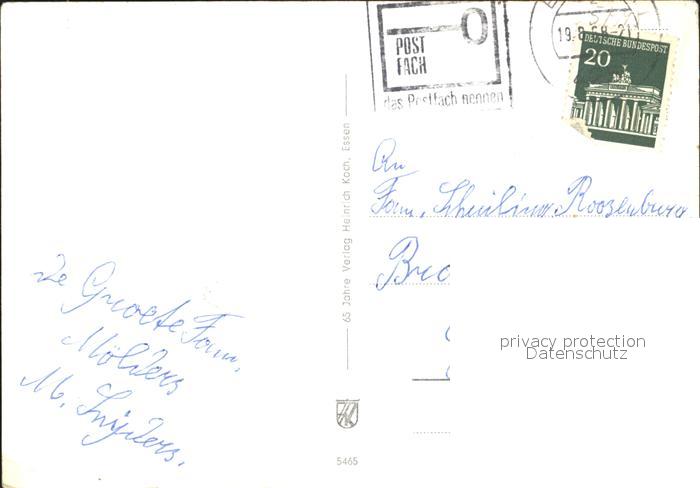 POST
FACH
das Postfach nennen
19.8.68-21
DEUTSCHE BUNDESPOST
20
65 Jahre Verlag Heinrich Koch, Essen
5465
An
Fam. Scheulino Roozenburg
Bre
privacy protection
Datenschutz
De Groete Fam.
Mölders
M. Snijders.